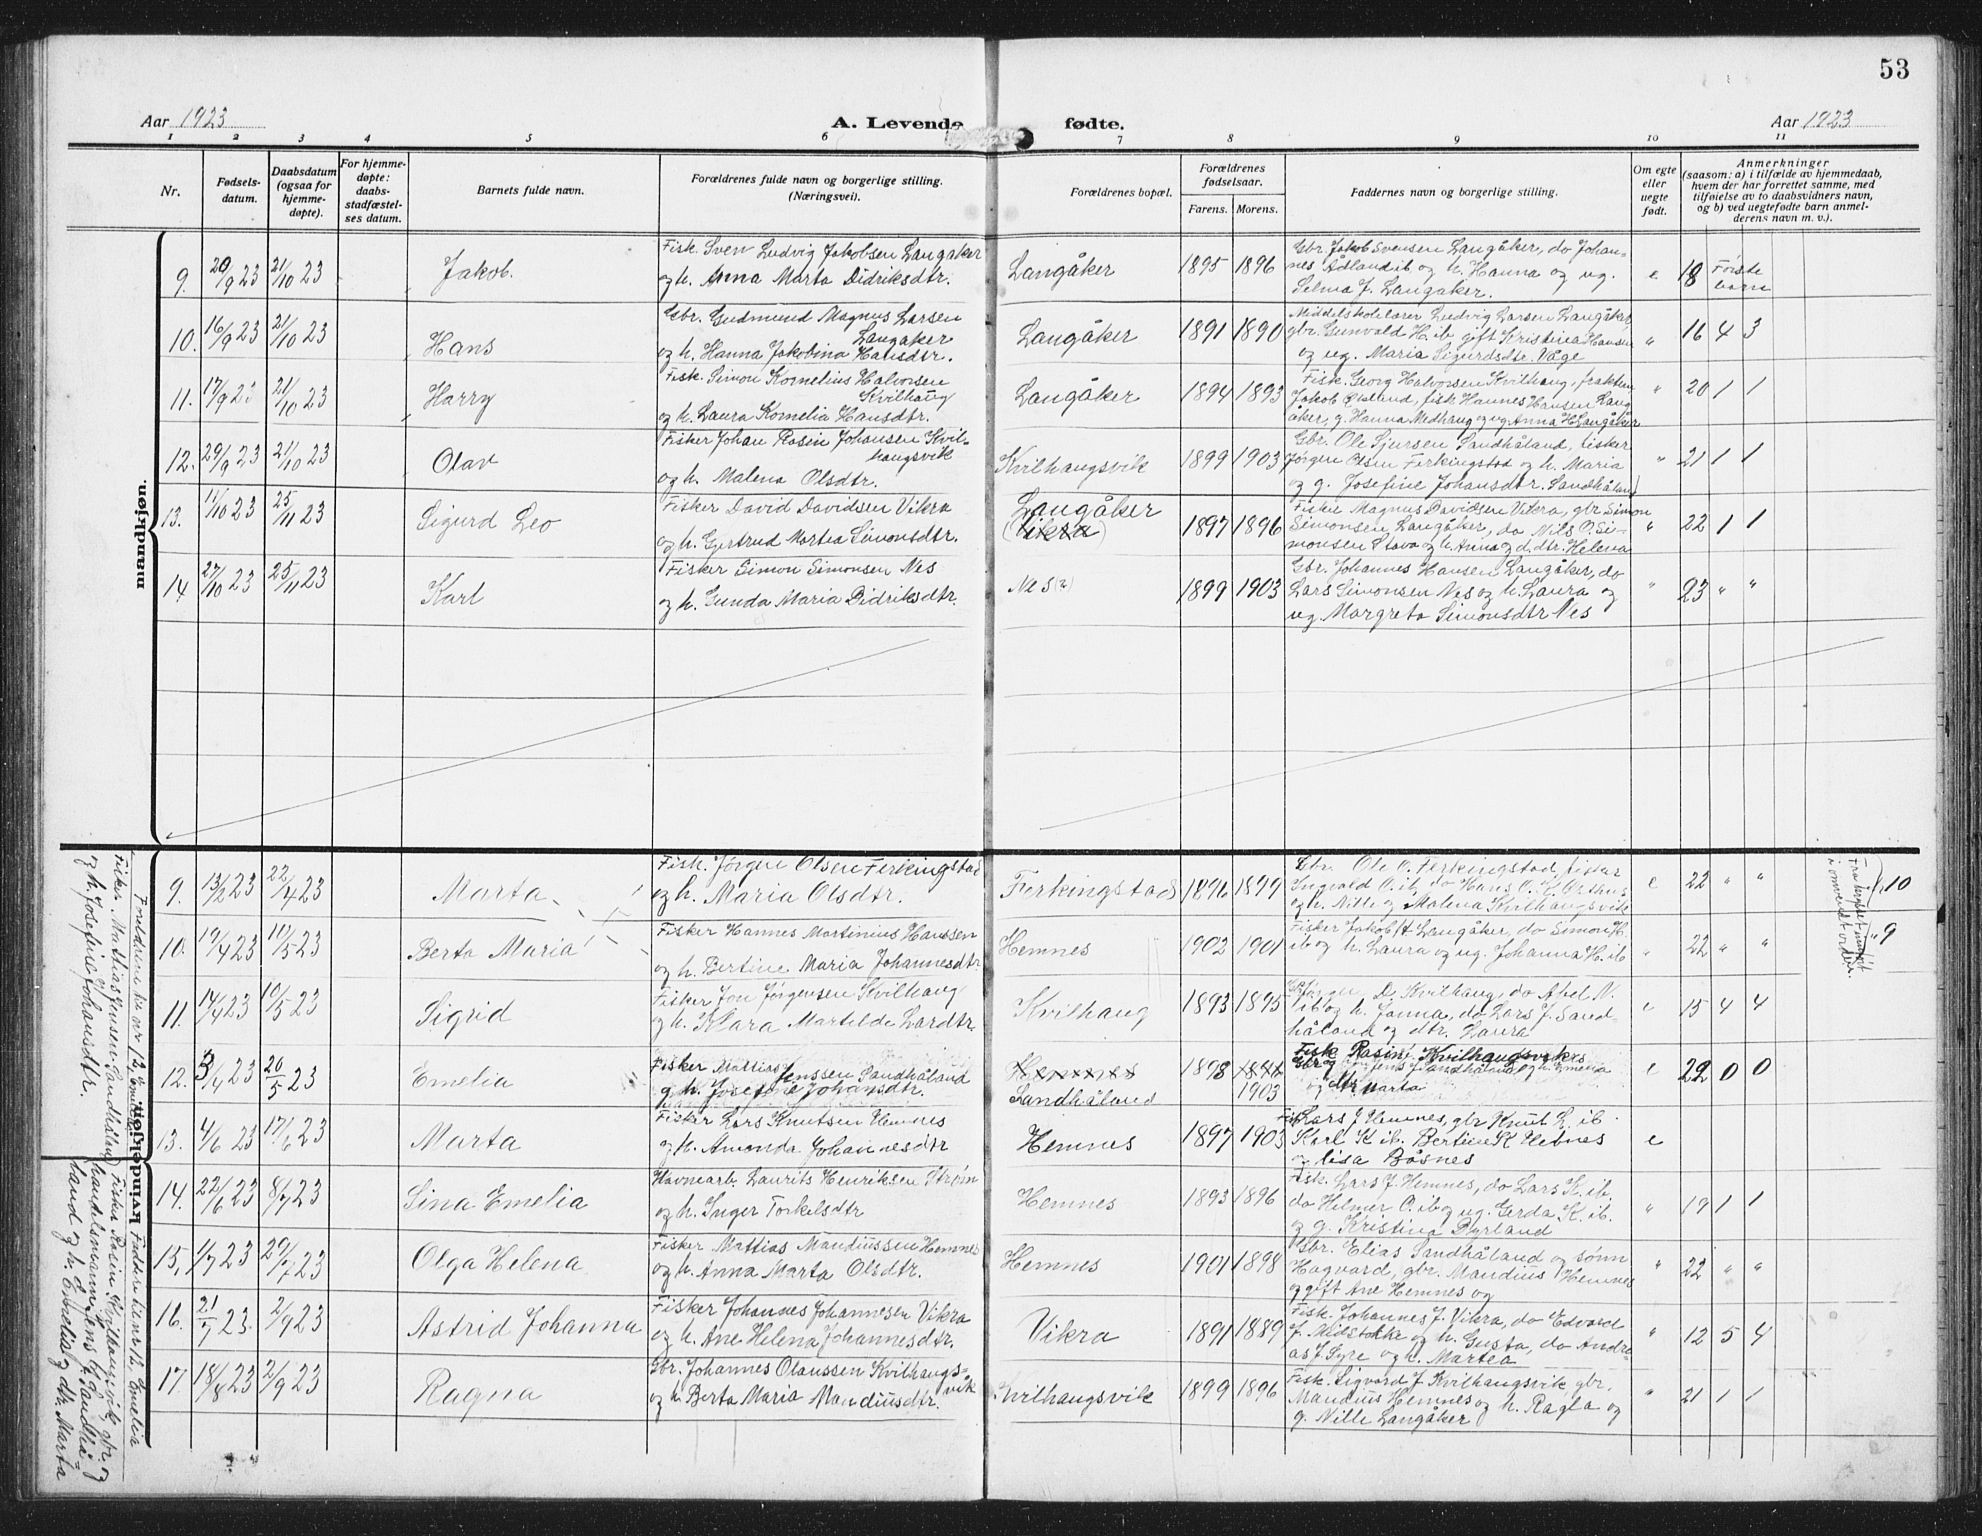 53
Aar 1923
A. Levende fødte.
Aar 1923
1 2 3 4 5 6 7 8 9 10 11
Nr.
Fødsels-
datum.
Daabsdatum
(ogsaa for
hjemme-
døpte).
For hjemme-
døpte:
daabs-
stadfæstel-
ses datum.
Barnets fulde navn.
Forældrenes fulde navn og borgerlige stilling.
(Næringsvei).
Forældrenes bopæl.
Forældrenes
fødselsaar.
Farens. Morens.
Faddernes navn og borgerlige stilling.
Om egte
eller
uegte
født.
Anmerkninger
(saasom: a) i tilfælde av hjemmedaab,
hvem der har forrettet samme, med
tilføielse av to daabsvidners navn,
og b) ved uegtefødte barn anmel-
derens navn m. v.).
mandkjøn.
9. 20/9 23 21/10 23 Jakob.
Fisk. Sven Ludvig Jakobsen Langåker
og h. Anna Marta Didriksdtr.
Langåker 1895 1896
Gbr. Jakob Svensen Langåker, do Johan-
nes Ådland ib og h. Hanna og ug.
Selma J. Langåker.
e 18 Første
barn
10. 16/9 23 21/10 23 Hans
Gbr. Gudmund Magnus Larsen
Langåker
og h. Hanna Jakobina Hansdtr.
Langåker 1891 1890
Middelskolelærer Ludvig Larsen Langåker,
gbr. Gunvald H. ib, gift Kristina Hansen
og ug. Maria Sigurdsdtr. Våge
" 16 4 3
11. 17/9 23 21/10 23 Harry
Fisk. Simon Kornelius Halvorsen
Kvilhaug
og h. Laura Kornelia Hansdtr.
Langåker 1894 1893
Fisk. Georg Halvorsen Kvilhaug,
Jakob fisk Hannes Hansen Lang
åker, g. Hanna Medhaug og ug Anna H Langåker
" 20 1 1
12. 29/9 23 21/10 23 Olav
Fisker Johan Rasin Johansen Kvil-
haugsvik
og h. Malena Olsdtr.
Kvilhaugsvik 1899 1903
Gbr. Ole Sjursen Sandhåland, fisker
Jørgen Olsen Ferkingstad og h. Maria
og g. Josefine Johansdtr. Sandhåland
" 21 1 1
13. 11/10 23 25/11 23 Sigurd Leo
Fisker David Davidsen Vikra
og h. Gjertrud Martea Simonsdtr.
Langåker
(Vikra) 1897 1896
Fisker Magnus Davidsen Vikra, gbr Simon
Simonsen Langåker, do Nils O. Si-
monsen Stava og h. Anna og d. dtr. Helena
" 22 1 1
14 27/10 23 25/11 23 Karl
Fisker Simon Simonsen Nes
og h. Gunda Maria Didriksdtr.
Nes (2) 1899 1903
Gbr. Johannes Hansen Langåker, do
Lars Simonsen Nes og h. Laura og
ug. Margreta Simonsdtr Nes
" 23 " "
kvindekjøn.
9. 13/2 23 22/4 23 Marta
Fisk. Jørgen Olsen Ferkingstad
og h. Maria Olsdtr.
Ferkingstad 1896 1899
Gbr. Ole O. Ferkingstad, fisker
Ingvald O. ib, do Hans O. K.
og h. Nille og Malena Kvilhaugsvik
e 22 " "
10
10. 19/4 23 10/5 23 Berta Maria
Fisker Hannes Martinius Hanssen
og h. Bertine Maria Johannesdtr
Hemnes 1902 1901
Fisker Jakob H Langåker, do Simon H.
ib og h. Laura og ug. Johanna H. ib
" 22 " "
9
i omvendt orden
11. 14/4 23 10/5 23 Sigrid
Fisker Jon Jørgensen Kvilhaug
og h. Klara Martilde Lardtr
Kvilhaug 1893 1895
Gbr Jørgen D. Kvilhaug, do Abel N.
ib og h. Janna, do Lars J. Sand-
håland og dtr. Laura
e 15 4 4
12. 3/4 23 20/5 23 Emelia
Fisker Mattias Jenssen Sandhåland
og h. Josefine Johansdtr.
Hemnes
Sandhåland 1898 1903
Fisk Rasin Kvilhaugsvik og
Gbr og Jens J Sandhåland og h. Emelia
og dtr Marta
e 22 0 0
13. 4/6 23 17/6 23 Marta
Fisker Lars Knutsen Hemnes
og h. Amanda Johannesdtr
Hemnes 1897 1903
Fisk Lars J Hemnes, gbr Knut L. ib
Karl K ib. Bertine K Hemnes
og Lisa Båsnes
e
14. 22/6 23 8/7 23 Sina Emelia
Havnearb. Laurits Henriksen Strøm
og h. Inger Torkelsdtr
Hemnes 1893 1896
Fisk. Lars J. Hemnes, do Lars K. ib.
do Helmer O. ib og ug. Gerda K. ib.
og g. Kristina Byrland
" 19 1 1
15. 1/7 23 29/7 23 Olga Helena
Fisker Mattias Mandiussen Hemnes
og h. Anna Marta Olsdtr.
Hemnes 1901 1898
Gbr. Elias Sandhåland og sønn
Hagvard, gbr. Mandius Hemnes
og gift Ane Hemnes og
" 22 " "
16. 21/7 23. 2/9 23 Astrid Johanna
Fisker Johannes Johannesen Vikra
og h. Ane Helena Johannesdtr.
Vikra 1891 1889
Fisk. Johannes J. Vikra, do Edvard
J. Midstokke og h. Gusta, do Andre-
as J. Syre og h. Martea
" 12 5 4
17. 18/8 23 2/9 23 Ragna
Gbr. Johannes Olaussen Kvilhaugs-
vik
og h Berta Maria Mandiusdtr.
Kvilhaugsvik 1899 1896
Fisk. Sigvard J. Kvilhaugsvik gbr.
Mandius Hemnes og h. Ragla og
g. Nille Langåker
" 21 1 1
Foreldrene til nr 12, Emelia:
Fisker Mattias Jensen Sandhåland
og h. Josefine Johansdtr.
Faddere til nr 12 Emelia
Fisker Rasin Kvilhaugsvik, gbr. og
handelsmann Jens J. Sandhå-
land og h. Emelia og dtr. Marta